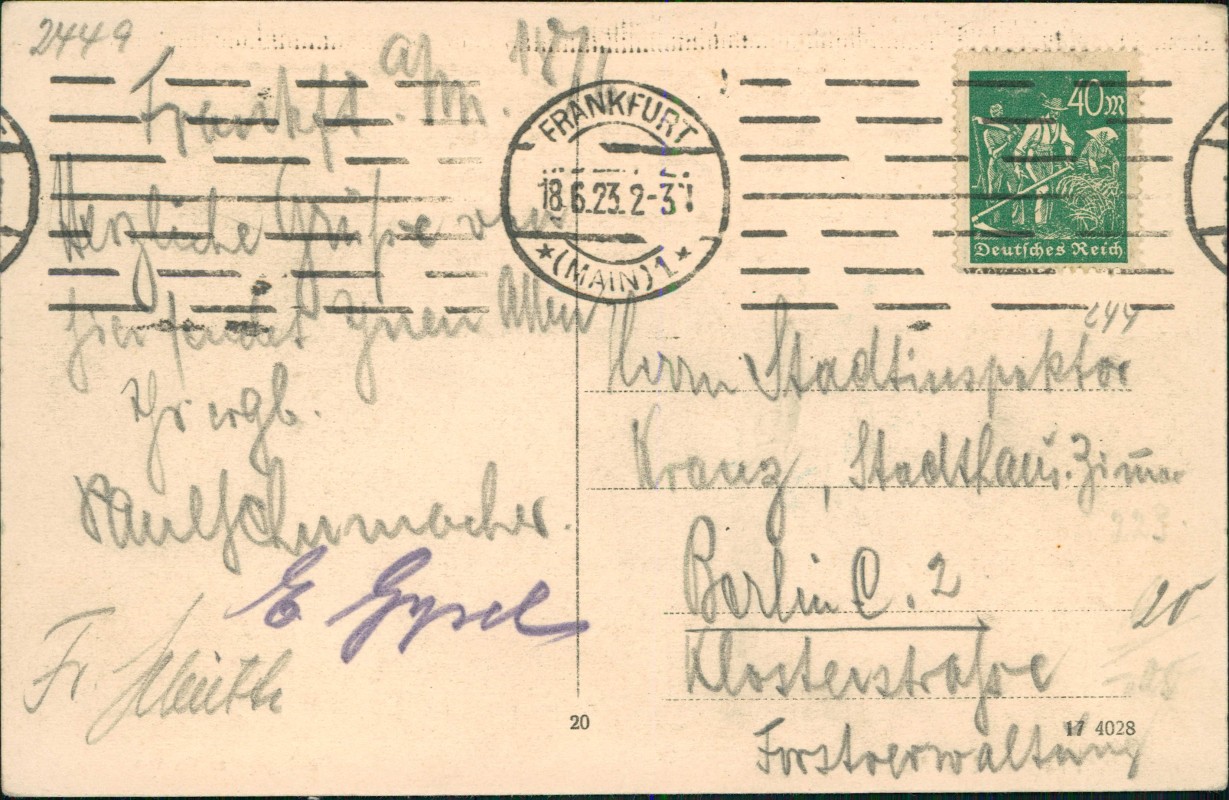 2449
Frankft a/m.
Herzliche Grüße von
hier sendet Ihnen Allen
Ihr ergb.
Paul Schumacher.
E. Gysel
Fr.
FRANKFURT
18.6.23. 2-3
* (MAIN) 1 *
40 M
Deutsches Reich
244
Herrn Stadtinspektor
Kranz, Stadthaus. Zimmer
223
Berlin C. 2
Klosterstraße
Forstverwaltung
20
20
17 4028